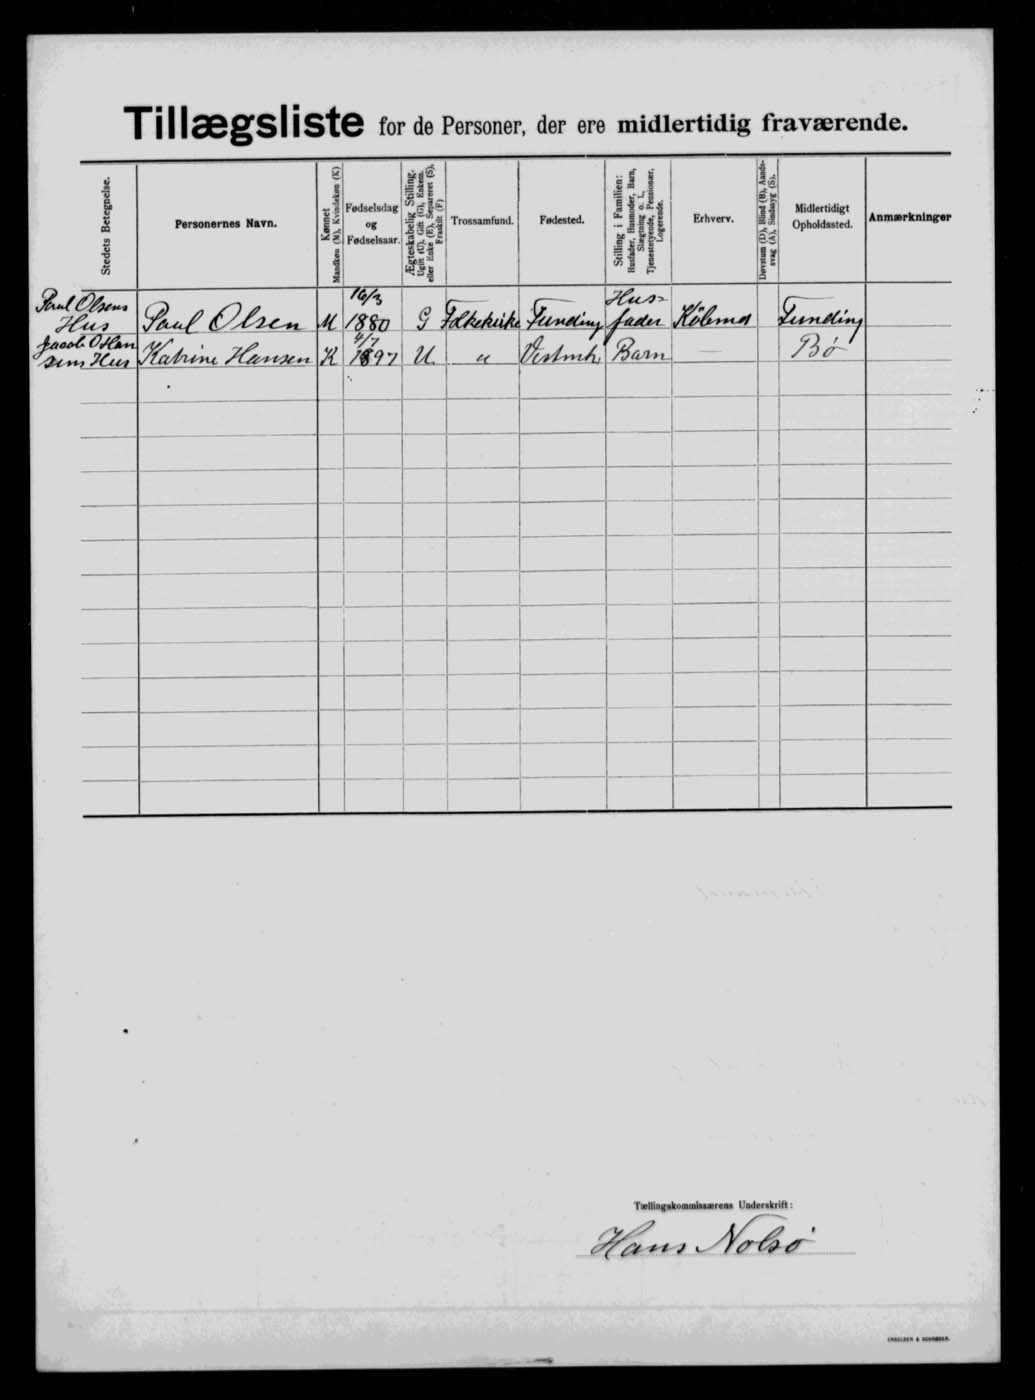 Tillægsliste for de Personer, der ere midlertidig fraværende.
Stedets Betegnelse.
Personernes Navn.
Kønnet
Mandkøn (M), Kvindekøn (K)
Fødselsdag
og
Fødselsaar.
Ægteskabelig Stilling.
Ugift (U), Gift (G), Enkem.
eller Enke (E), Separeret (S),
Fraskilt (F)
Trossamfund.
Fødested.
Stilling i Familien:
Husfader, Husmoder, Barn,
Slægtning o. l.,
Tjenestetyende, Pensionær,
Logerende.
Erhverv.
Døvstum (D), Blind (B), Aands-
svag (A), Sindssyg (S).
Midlertidigt
Opholdssted.
Anmærkninger
Paul Olsens
Hus
Paul Olsen
M
16/3
1880
G
Folkekirke
Funding
Hus-
fader
Købmd
Funding
Jacob O Han
sens Hus
Katrine Hansen
K
4/7
1897
U.
"
Vestmh.
Barn
—
Bø
Tællingskommissærens Underskrift:
Hans Nolsø